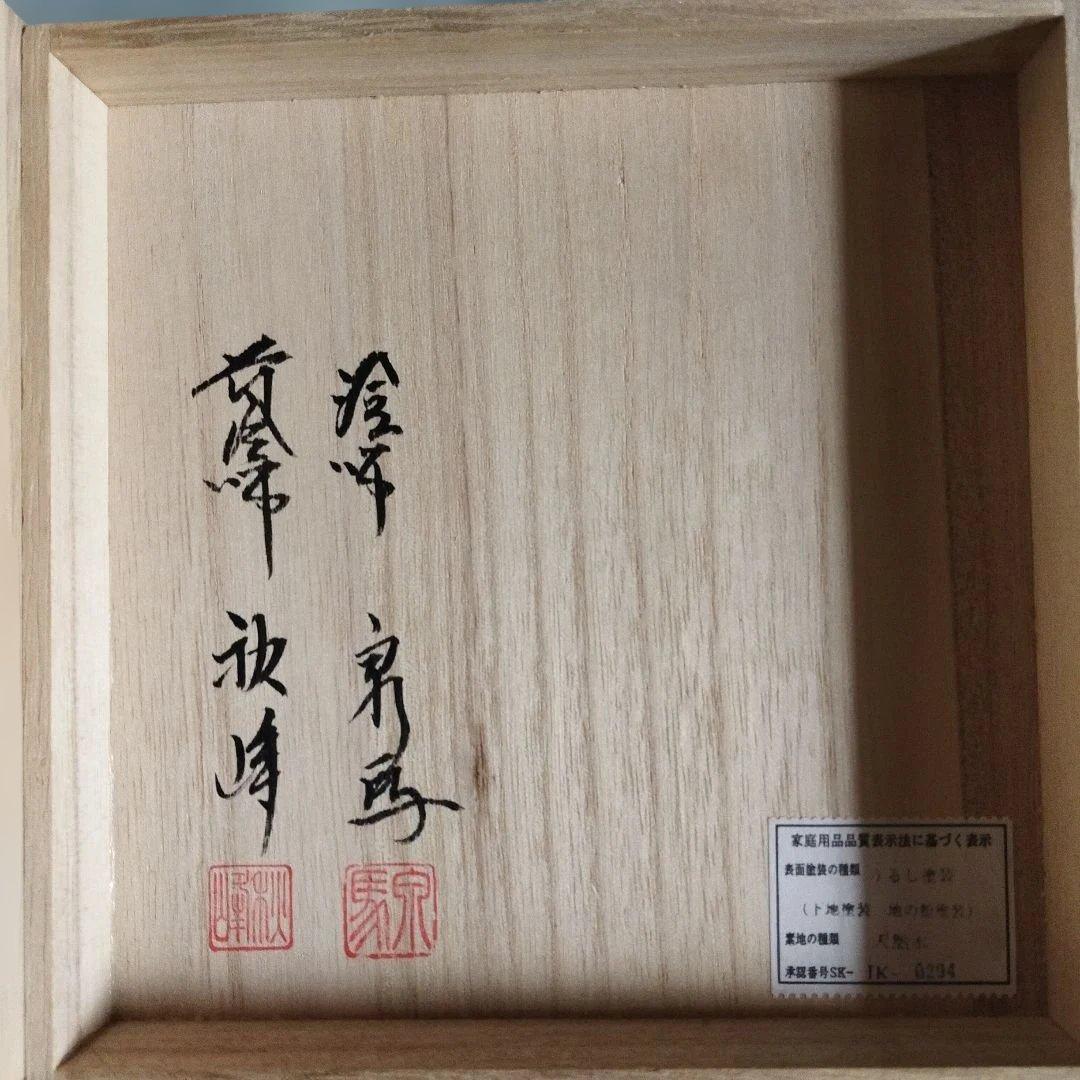 塗師 泉馬
蒔絵師 秋峰
泉馬
秋峰
家庭用品品質表示法に基づく表示
表面塗装の種類 うるし塗装
(下地塗装 地の粉塗装)
素地の種類 天然木
承認番号SK- IK- 0294